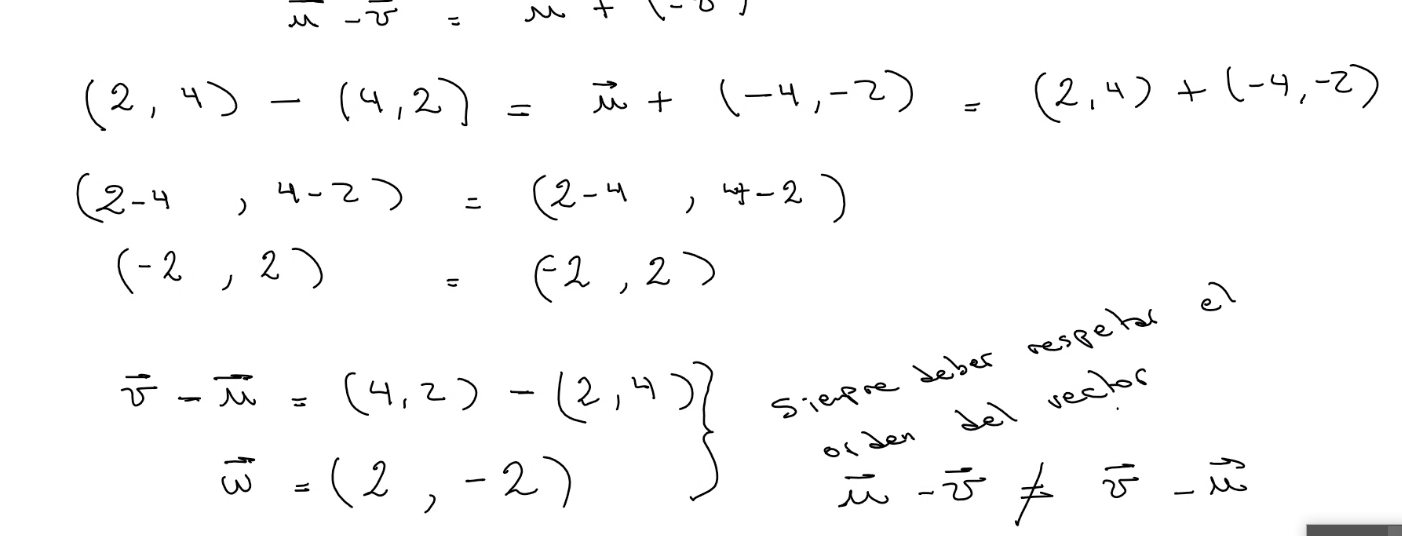 u⃗ - v⃗ = u + (-v)
(2, 4) - (4, 2) = u⃗ + (-4, -2) = (2, 4) + (-4, -2)
(2-4 , 4-2) = (2-4 , 4-2)
(-2 , 2) = (-2 , 2)
v⃗ - u⃗ = (4, 2) - (2, 4)
w⃗ = (2 , -2)
Siempre deber respetar el
orden del vector
u⃗ - v⃗ ≠ v⃗ - u⃗